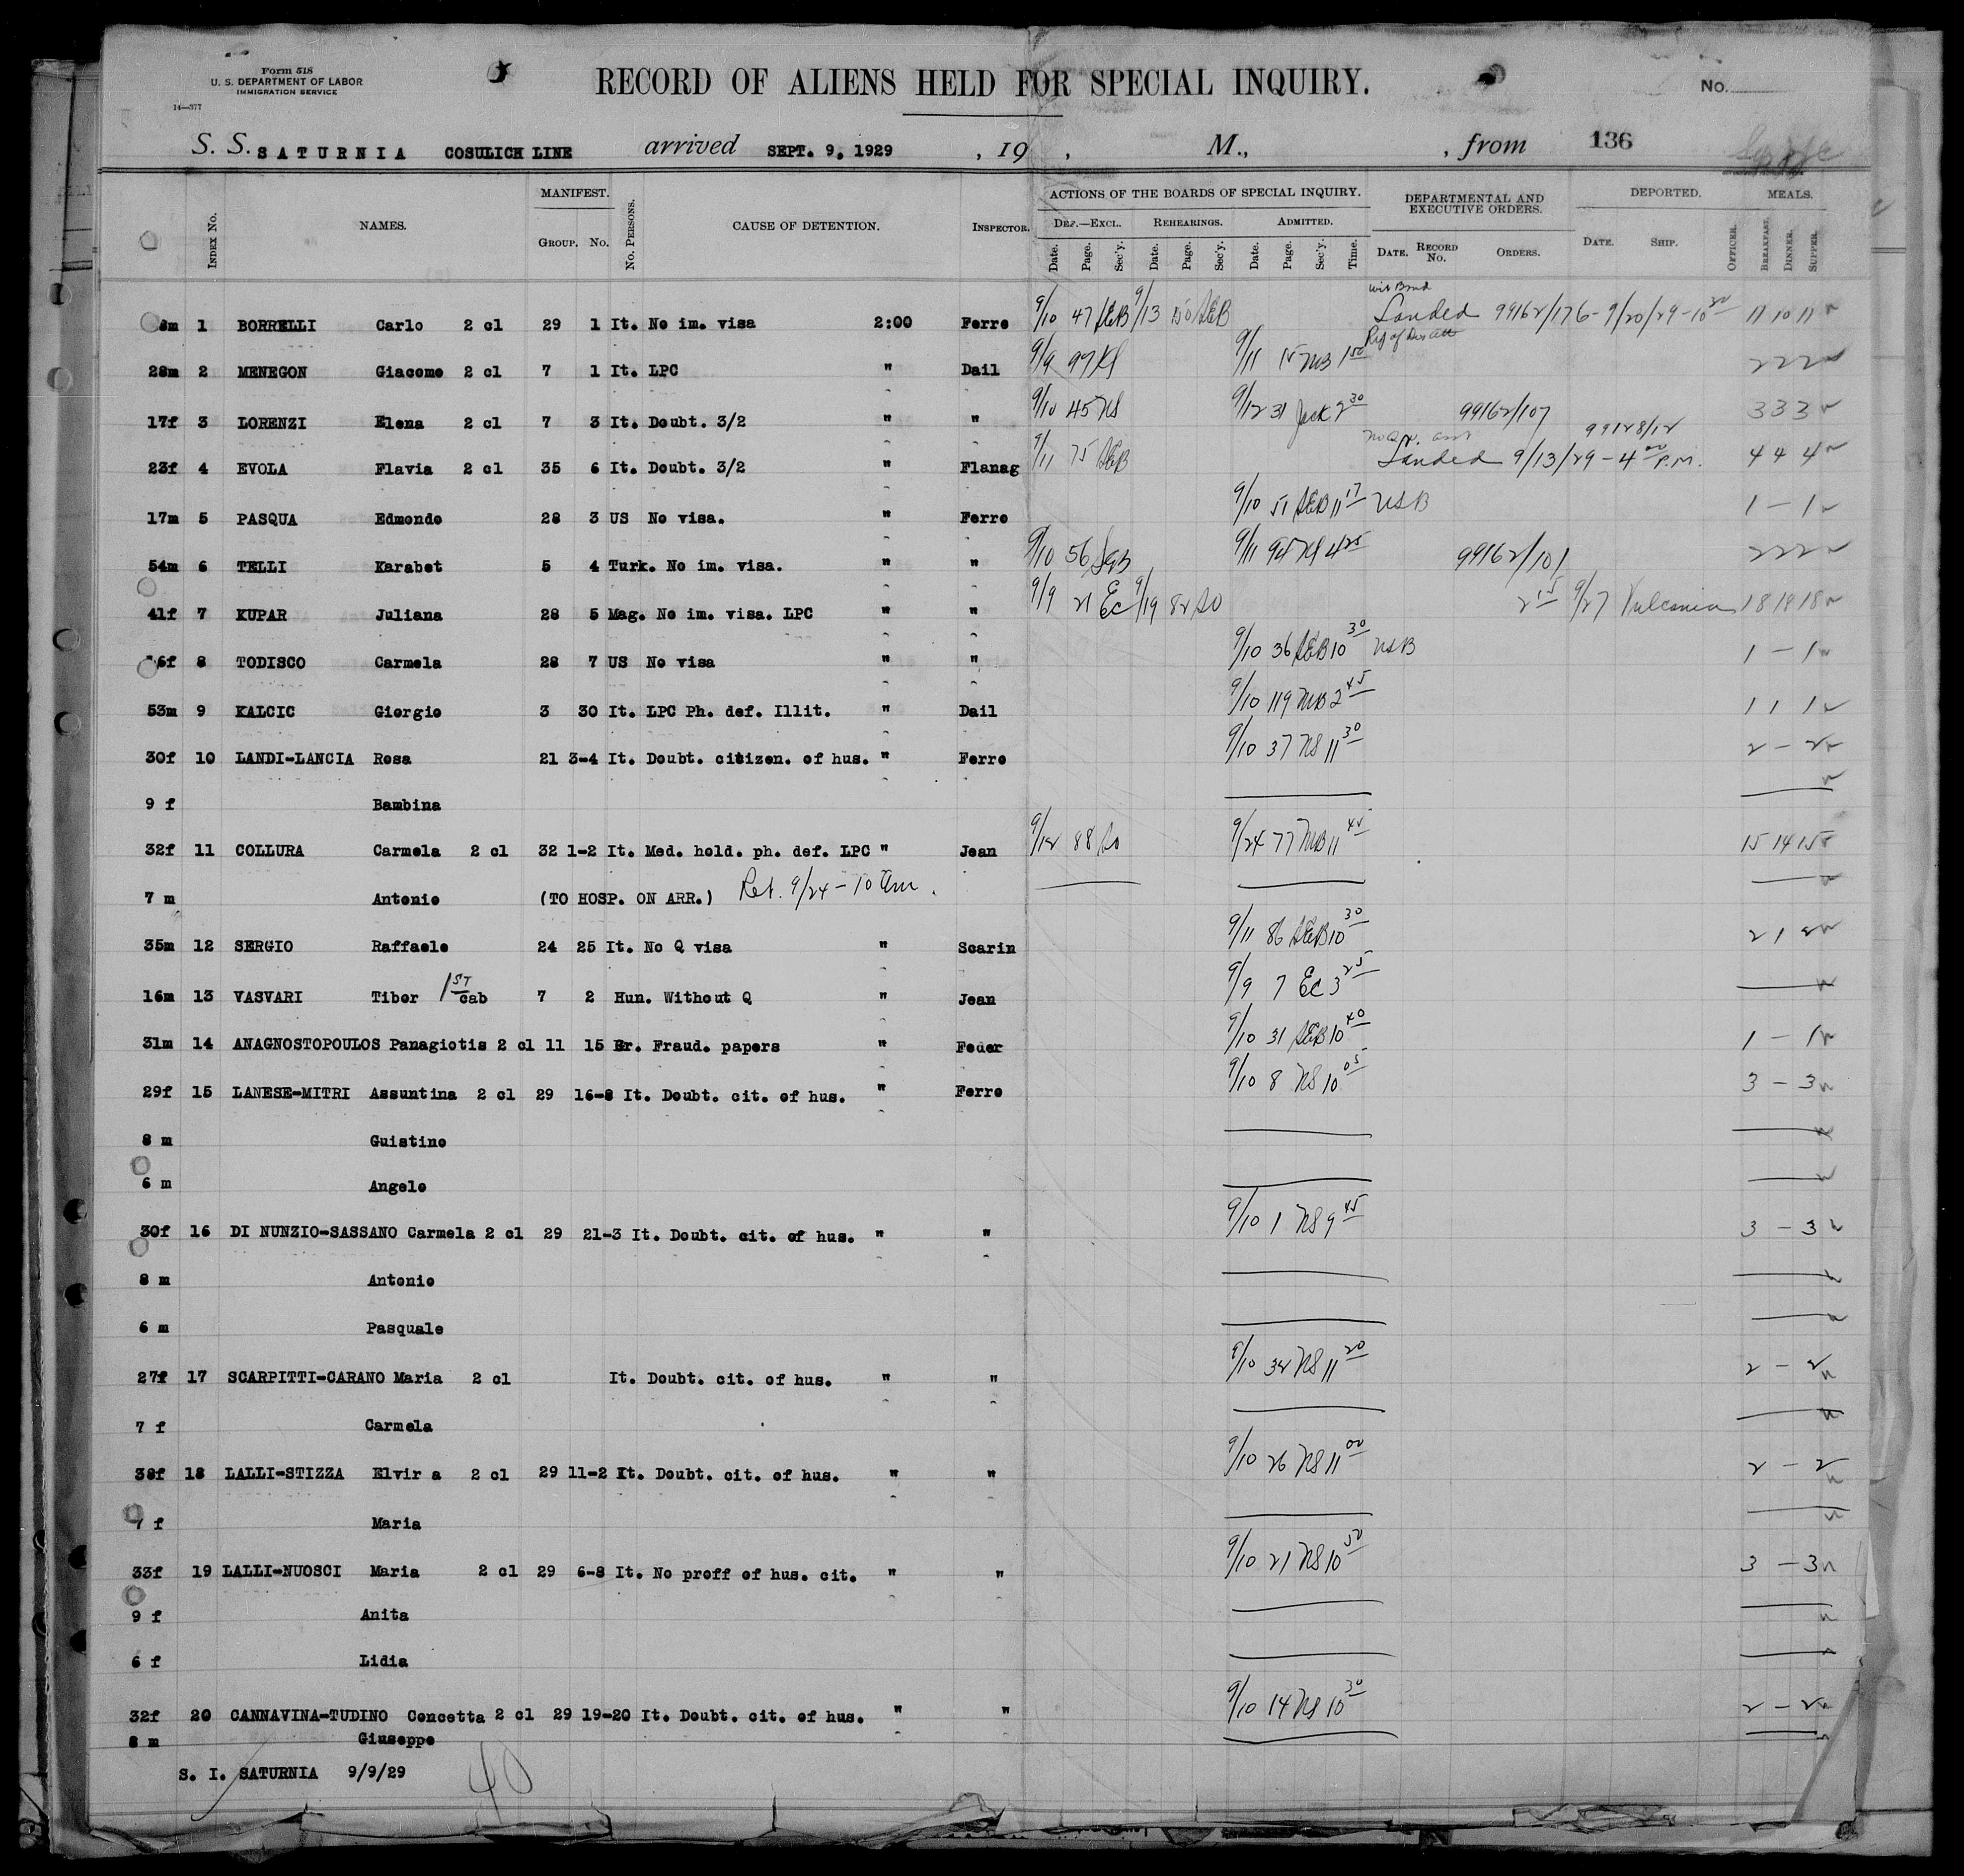 Form 518
U. S. DEPARTMENT OF LABOR
IMMIGRATION SERVICE
14—377
RECORD OF ALIENS HELD FOR SPECIAL INQUIRY.
No.
S. S. SATURNIA COSULICH LINE arrived SEPT. 9, 1929 , 19 , M., , from 136
INDEX No. NAMES. MANIFEST. GROUP. No. No. PERSONS. CAUSE OF DETENTION. INSPECTOR. ACTIONS OF THE BOARDS OF SPECIAL INQUIRY. DEPARTMENTAL AND EXECUTIVE ORDERS. DEPORTED. MEALS.
DEF.—EXCL. REHEARINGS. ADMITTED.
Date. Page. Sec'y. Date. Page. Sec'y. Date. Page. Sec'y. Time. DATE. RECORD No. ORDERS. DATE. SHIP. OFFICER. BREAKFAST. DINNER. SUPPER.
1 BORRELLI Carlo 2 cl 29 1 It. No im. visa 2:00 Ferro 9/10 47 SEB 9/13 SEB Landed 99162/176 - 9/20/29 - 10 11 10 11
28m 2 MENEGON Giacomo 2 cl 7 1 It. LPC " Dail 9/9 97 9/11 15 MB 1 50 2 2 2
17f 3 LORENZI Elena 2 cl 7 3 It. Doubt. 3/2 " " 9/10 45 NS 9/12 31 Jack 2 30 99162/107 3 3 3
23f 4 EVOLA Flavia 2 cl 35 6 It. Doubt. 3/2 " Flanag 9/11 75 SEB 99128/12 Landed 9/13/29 - 4 00 P.M. 4 4 4
17m 5 PASQUA Edmondo 28 3 US No visa. " Ferro 9/10 51 SEB 11 17 USB 1 – 1
54m 6 TELLI Karabet 5 4 Turk. No im. visa. " " 9/10 56 9/11 94 NS 4 25 99162/101 2 2 2
41f 7 KUPAR Juliana 28 5 Mag. No im. visa. LPC " " 9/9 21 EC 9/19 82 SO 2 15 9/27 Vulcania 18 18 18
8 TODISCO Carmela 28 7 US No visa " " 9/10 36 SEB 10 30 USB 1 – 1
53m 9 KALCIC Giorgio 3 30 It. LPC Ph. def. Illit. " Dail 9/10 119 MB 2 45 1 1 1
30f 10 LANDI-LANCIA Rosa 21 3-4 It. Doubt. citizen. of hus. " Ferro 9/10 37 NS 11 30 2 – 2
9 f Bambina
32f 11 COLLURA Carmela 2 cl 32 1-2 It. Med. hold. ph. def. LPC " Jean 9/12 88 SO 9/24 77 MB 11 45 15 14 15
7 m Antonio (TO HOSP. ON ARR.) Ret. 9/24 - 10 am.
35m 12 SERGIO Raffaele 24 25 It. No Q visa " Scarin 9/11 86 SEB 10 30 2 1 2
16m 13 VASVARI Tibor 1ST cab 7 2 Hun. Without Q " Jean 9/9 7 EC 3 25
31m 14 ANAGNOSTOPOULOS Panagiotis 2 cl 11 15 Gr. Fraud. papers " Feder 9/10 31 SEB 10 40 1 – 1
29f 15 LANESE-MITRI Assuntina 2 cl 29 16-8 It. Doubt. cit. of hus. " Ferro 9/10 8 NS 10 05 3 – 3
8 m Guistino
6 m Angelo
30f 16 DI NUNZIO-SASSANO Carmela 2 cl 29 21-3 It. Doubt. cit. of hus. " " 9/10 1 NS 9 45 3 – 3
8 m Antonio
6 m Pasquale
27f 17 SCARPITTI-CARANO Maria 2 cl It. Doubt. cit. of hus. " " 9/10 32 NS 11 20 2 – 2
7 f Carmela
38f 18 LALLI-STIZZA Elvira 2 cl 29 11-2 It. Doubt. cit. of hus. " " 9/10 26 NS 11 00 2 – 2
7 f Maria
33f 19 LALLI-NUOSCI Maria 2 cl 29 6-8 It. No proff of hus. cit. " " 9/10 21 NS 10 50 3 – 3
9 f Anita
6 f Lidia
32f 20 CANNAVINA-TUDINO Concetta 2 cl 29 19-20 It. Doubt. cit. of hus. " " 9/10 14 NS 10 30 2 – 2
8 m Giuseppe
S. I. SATURNIA 9/9/29 40